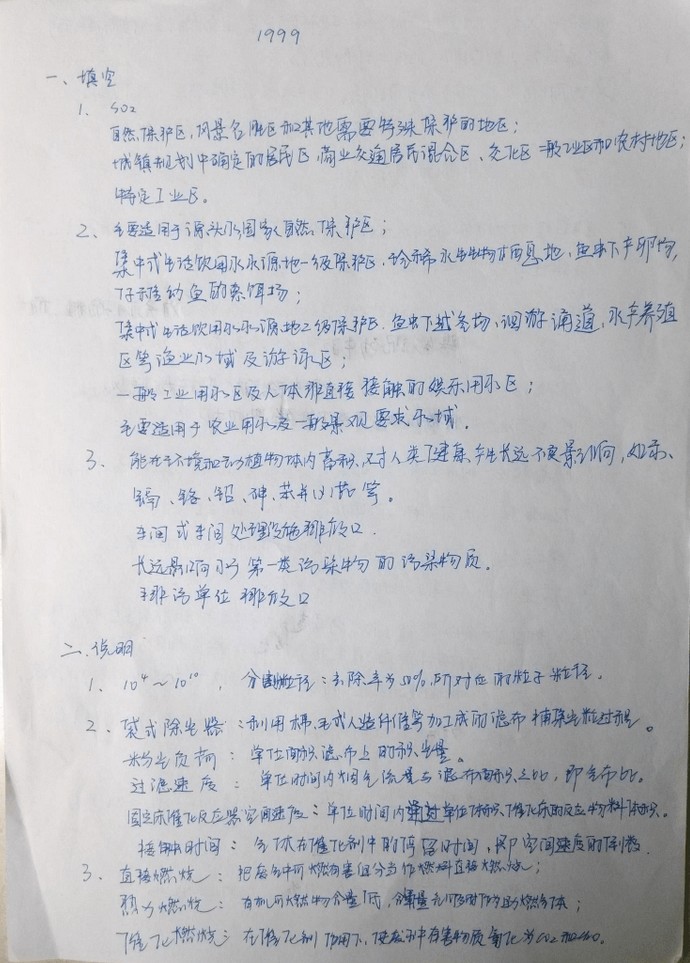 1999
一、填空
1. SO2
自然保护区,风景名胜区和其他需要特殊保护的地区;
城镇规划中确定的居民区,商业交通居民混合区、文化区 一般工业区和农村地区;
特定工业区。
2、主要适用于源头水国家自然保护区;
集中式生活饮用水水源地一级保护区,珍稀水生生物栖息地,鱼虾下产卵场,
仔稚幼鱼的索饵场;
集中式生活饮用水水源地二级保护区.鱼虾下越冬场,洄游通道,水产养殖
区等渔业水域及游泳区;
一般工业用水区及人体非直接接触的娱乐用水区;
主要适用于农业用水及一般景观要求水域.
3、能在环境和动植物体内富积,对人类健康产生长远不良影响,如汞、
镉、铬、铅、砷、苯并(a)芘等。
车间或车间处理设施排放口.
长远影响小于第一类污染物的污染物质.
排污单位排放口
二、说明
1、10⁴~10¹⁰, 分割粒径:去除率为50%所对应的粒子粒径.
2、袋式除尘器:利用棉、毛或人造纤维等加工成的滤布捕集尘粒过程。
粉尘负荷:单位面积滤布上的积尘量.
过滤速度:单位时间内烟气流量与滤布面积之比,即气布比.
固定床催化反应器空间速度:单位时间内通过单位体积催化床的反应物料体积.
接触时间:气体在催化剂中的停留时间,即空间速度的倒数.
3、直接燃烧:把废气中可燃有害组分当作燃料直接燃烧;
热力燃烧:有机可燃物含量低,
催化燃烧:在催化剂作用下,使废气中有害物质氧化为CO2和H2O.